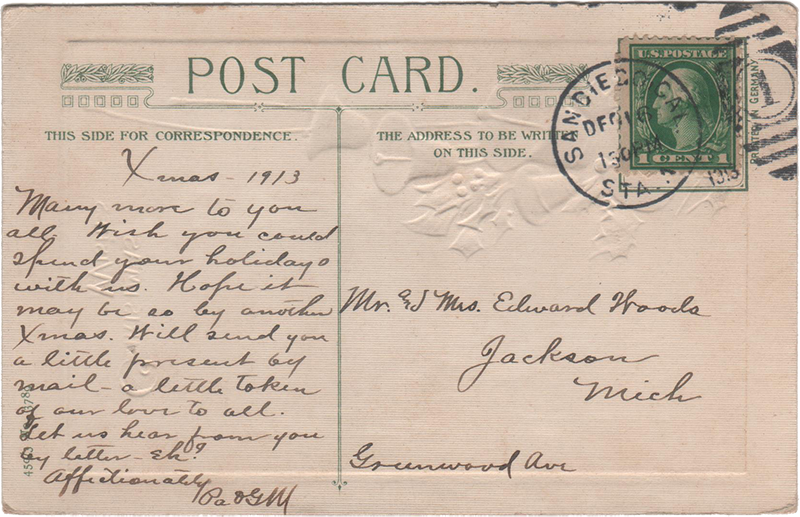 POST CARD.
THIS SIDE FOR CORRESPONDENCE.
THE ADDRESS TO BE WRITTEN
ON THIS SIDE.
U.S. POSTAGE
1 CENT 1
SAN DIEGO, CAL.
DEC 16
1 30 PM
STA. 
1913
1
PRINTED IN GERMANY
Xmas - 1913
Many more to you
all. Wish you could
spend your holidays
with us. Hope it
may be so by another
Xmas. Will send you
a little present by
mail - a little token
of our love to all.
Let us hear from you
by letter - Eh?
Affectionately
Pa & GM
Mr. & Mrs. Edward Woods
Jackson
Mich
Greenwood Ave